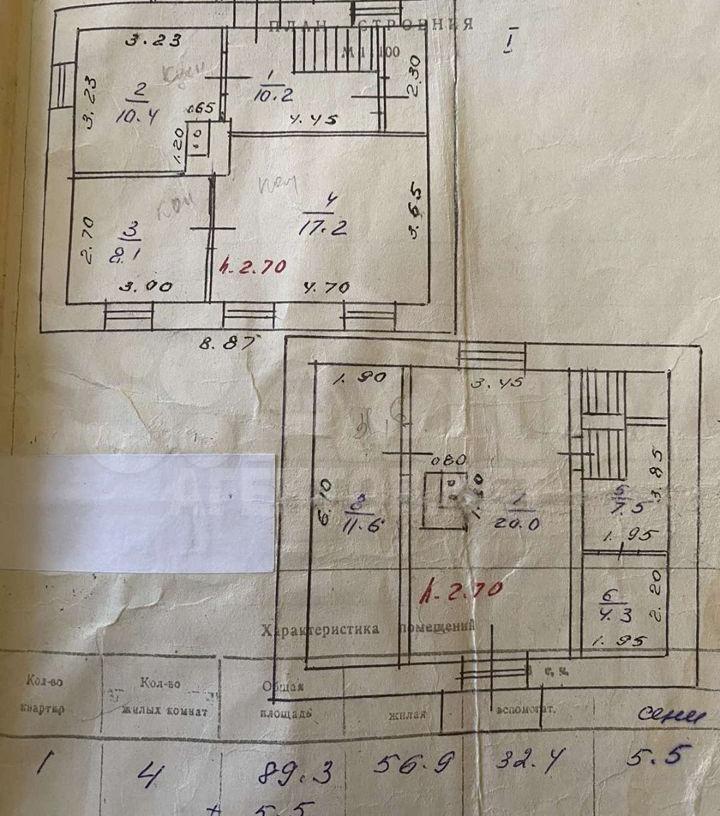 ПЛАН СТРОЕНИЯ
М 1:100
I
3.23
3.23
2
10.4
кухн
0.65
1.20
1
10.2
4.45
2.30
кот
3
8.1
2.70
3.00
4
17.2
3.65
4.70
h.2.70
8.87
1.90
6.10
8
11.6
3.45
0.80
1.30
20.0
h-2.70
5
7.5
3.85
1.95
6
4.3
2.20
1.95
Характеристика помещений
Кол-во квартир
Кол-во жилых комнат
Общая площадь
жилая
вспомогат.
сени
1 4 89.3 56.9 32.4 5.5
+ 5.5